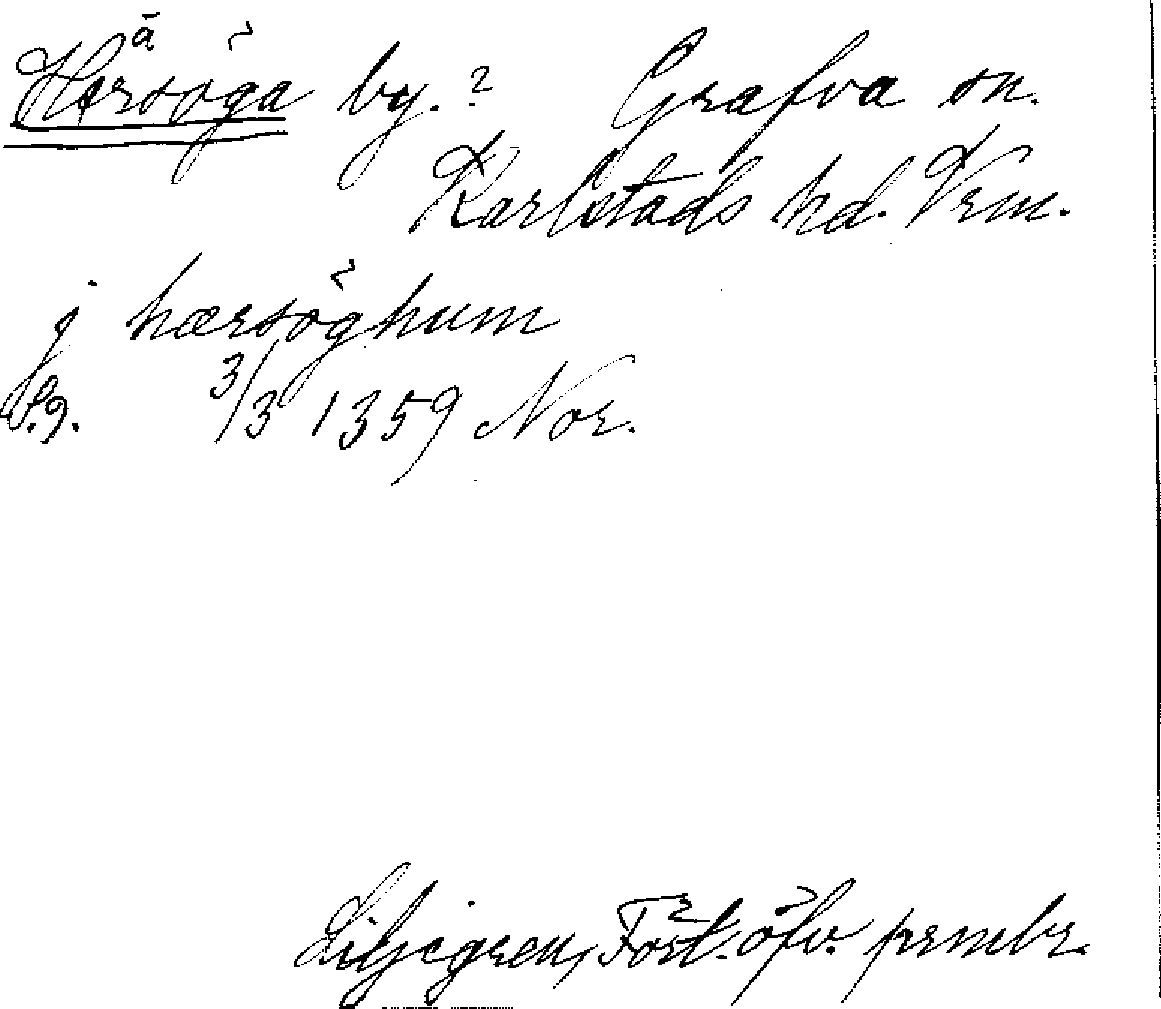 Hersöga by.? Grafva sn.
ä
Karlstads hd. Vrm.
j hærsöghum
3/3 1359 Nor.
Liljegren, Fört. öfv. prmbr.